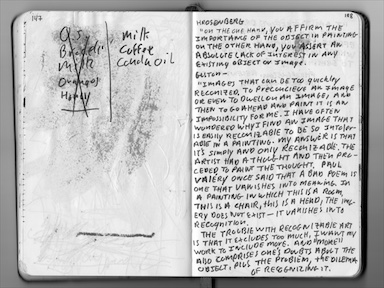 147
O.J.
Bread
milk
Oranges
Honey
milk
Coffee
Canola oil
148
H. ROSENBERG
"ON THE ONE HAND, YOU AFFIRM THE
IMPORTANCE OF THE OBJECT IN PAINTING
ON THE OTHER HAND, YOU ASSERT AN
ABSOLUTE LACK OF INTEREST IN ANY
EXISTING OBJECT OR IMAGE.
GUSTON—
"IMAGES THAT CAN BE TOO QUICKLY
RECOGNIZED, TO PRECONCIEVE AN IMAGE
OR EVEN TO DWELL ON AN IMAGE, AND
THEN TO GO AHEAD AND PAINT IT IS AN
IMPOSSIBILITY FOR ME. I HAVE OFTEN
WONDERED WHY I FIND AN IMAGE THAT
IS EASILY RECOGNIZABLE TO BE SO INTOLER-
ABLE IN A PAINTING. MY ANSWER IS THAT
IT'S SIMPLY AND ONLY RECOGNIZABLE. THE
ARTIST HAD A THOUGHT AND THEN PRO-
CEEDED TO PAINT THE THOUGHT. PAUL
VALERY ONCE SAID THAT A BAD POEM IS
ONE THAT VANISHES INTO MEANING. IN
A PAINTING IN WHICH THIS IS A ROOM,
THIS IS A CHAIR, THIS IS A HEAD, THE IMG-
ERY DOES NOT EXIST— IT VANISHES INTO
RECOGNITION.
THE TROUBLE WITH RECOGNIZABLE ART
IS THAT IT EXCLUDES TOO MUCH, I WANT MY
WORK TO INCLUDE MORE. AND "MORE"
ALSO COMPRISES ONE'S DOUBTS ABOUT THE
OBJECT, PLUS THE PROBLEM, THE DILEMMA
OF RECOGNIZING IT.